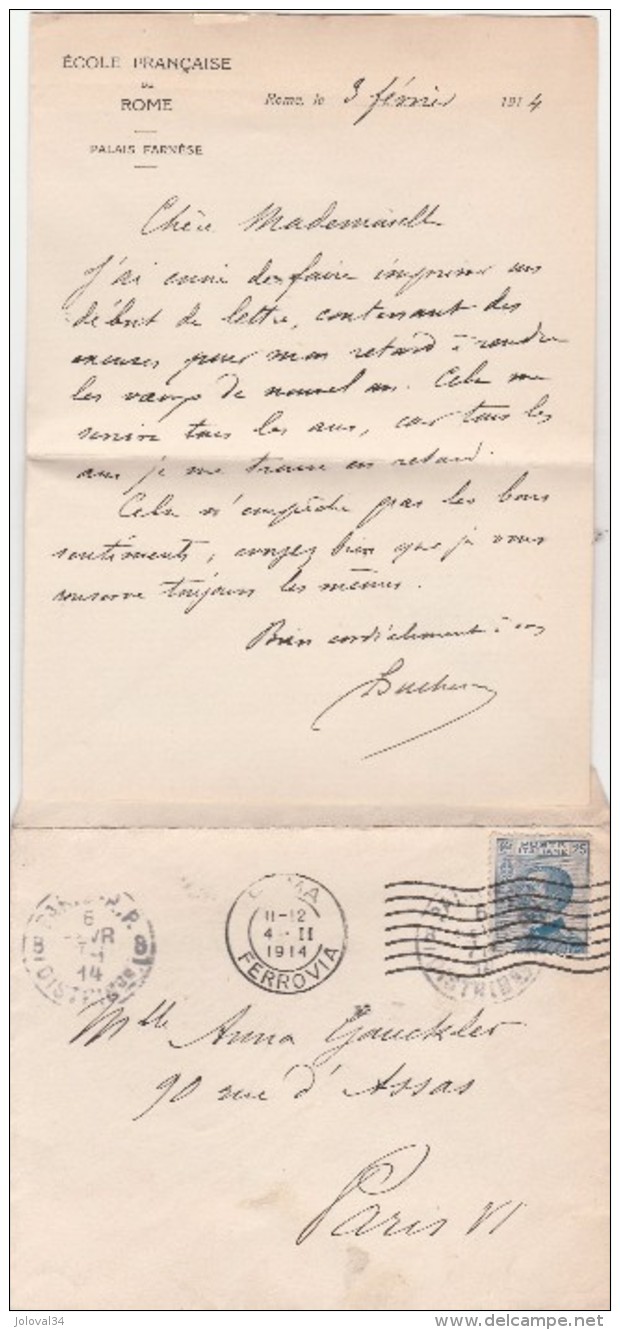 ÉCOLE FRANÇAISE
DE
ROME
PALAIS FARNÈSE
Rome, le 3 février 1914
Chère Mademoiselle
J'ai envie de faire imprimer un
début de lettre, contenant des
excuses pour mon retard à rendre
les vœux de nouvel an. Cela me
servira tous les ans, car tous les
ans je me trouve en retard.
Cela n'empêche pas les bons
sentiments, croyez bien que je vous
conserve toujours les mêmes.
Bien cordialement à vous
L Duchesne
POSTE ITALIANE 25
6
14
8 8
DIST
ROMA
11-12
4-II
1914
FERROVIA
Mlle Anna Gauckler
90 rue d'Assas
Paris VI
joloval34
www.delcampe.net